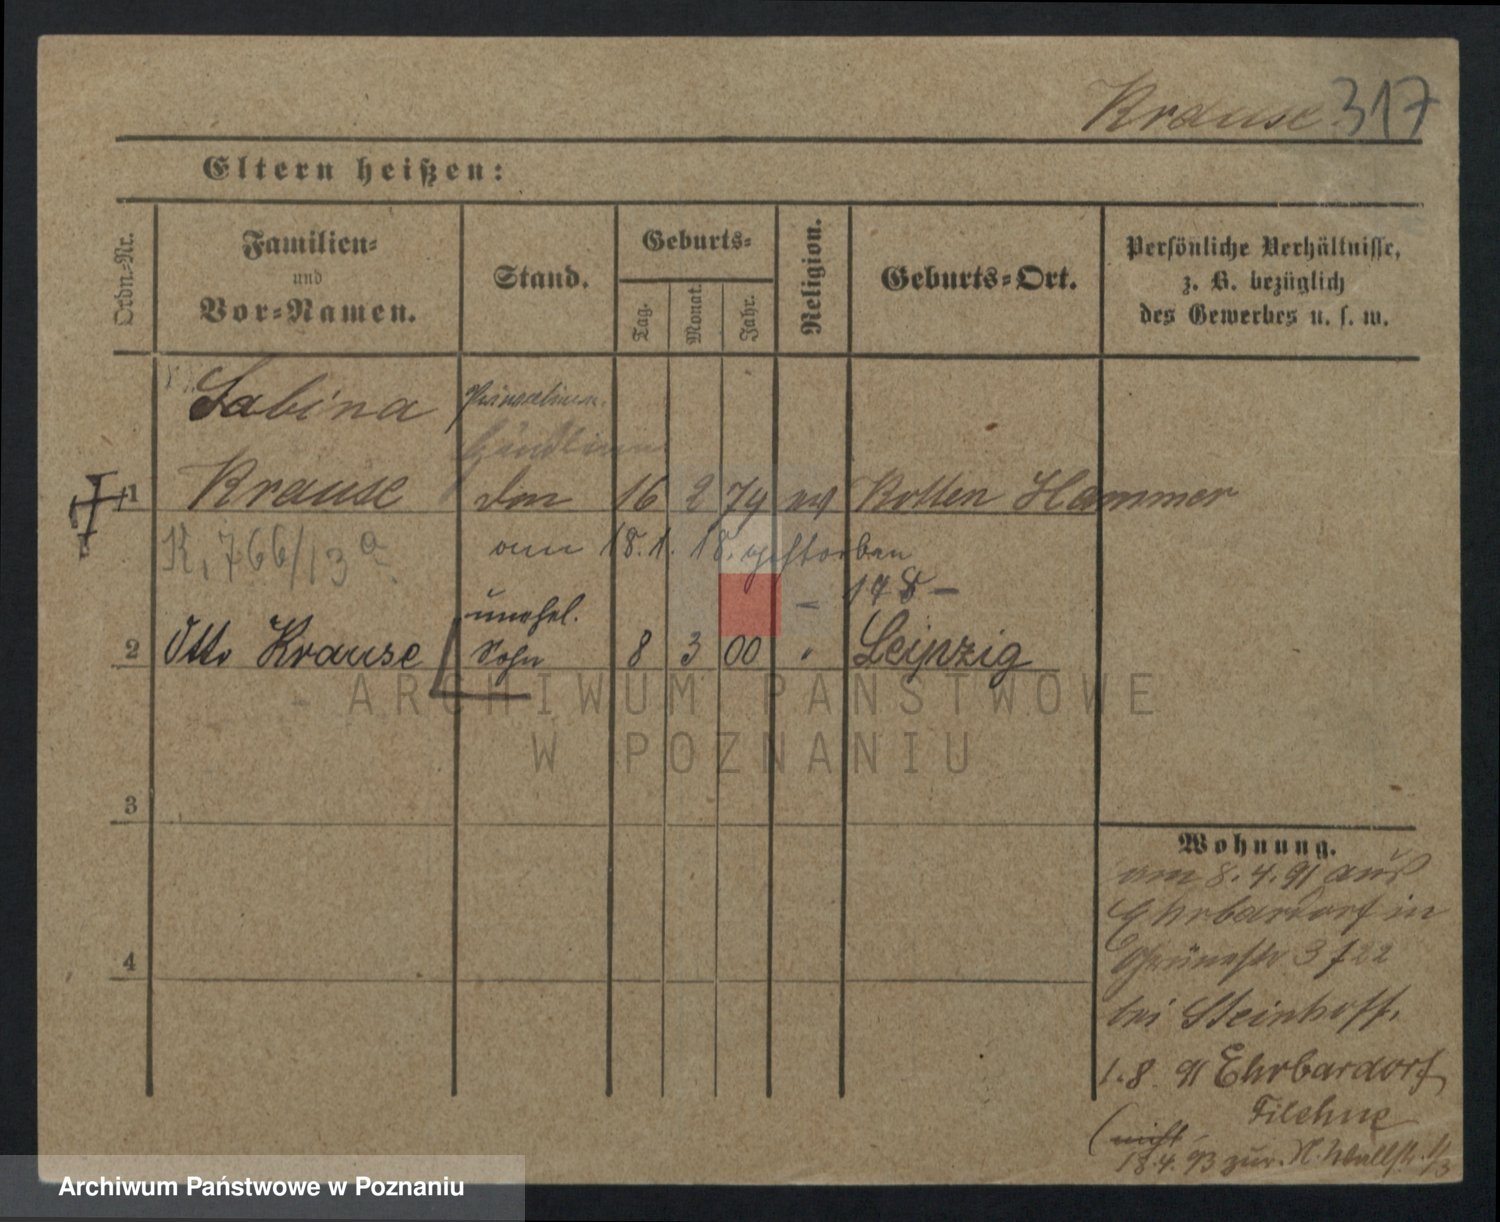 Krause 317
Eltern heißen:
Ordn.-Nr.
Familien-
und
Vor-Namen.
Stand.
Geburts-
Tag.
Monat.
Jahr.
Religion.
Geburts-Ort.
Persönliche Verhältnisse,
z. B. bezüglich
des Gewerbes u. s. w.
Sabina
Händlerin
1 Krause 16 2 79 Rotten Hammer
K. 766/13 a
am 18.1.18. gestorben
178 –
unehel.
2 Otto Krause Sohn 8 3 00 " Leipzig
ARCHIWUM PAŃSTWOWE
W POZNANIU
3
4
Wohnung.
am 8.4.91 aus
Ehrbardorf in
3 f 22
bei Steinhoff.
1.8. 91 Ehrbardorf
Filehne
18.4.93 zur. N. Wallstr. 1/3
Archiwum Państwowe w Poznaniu